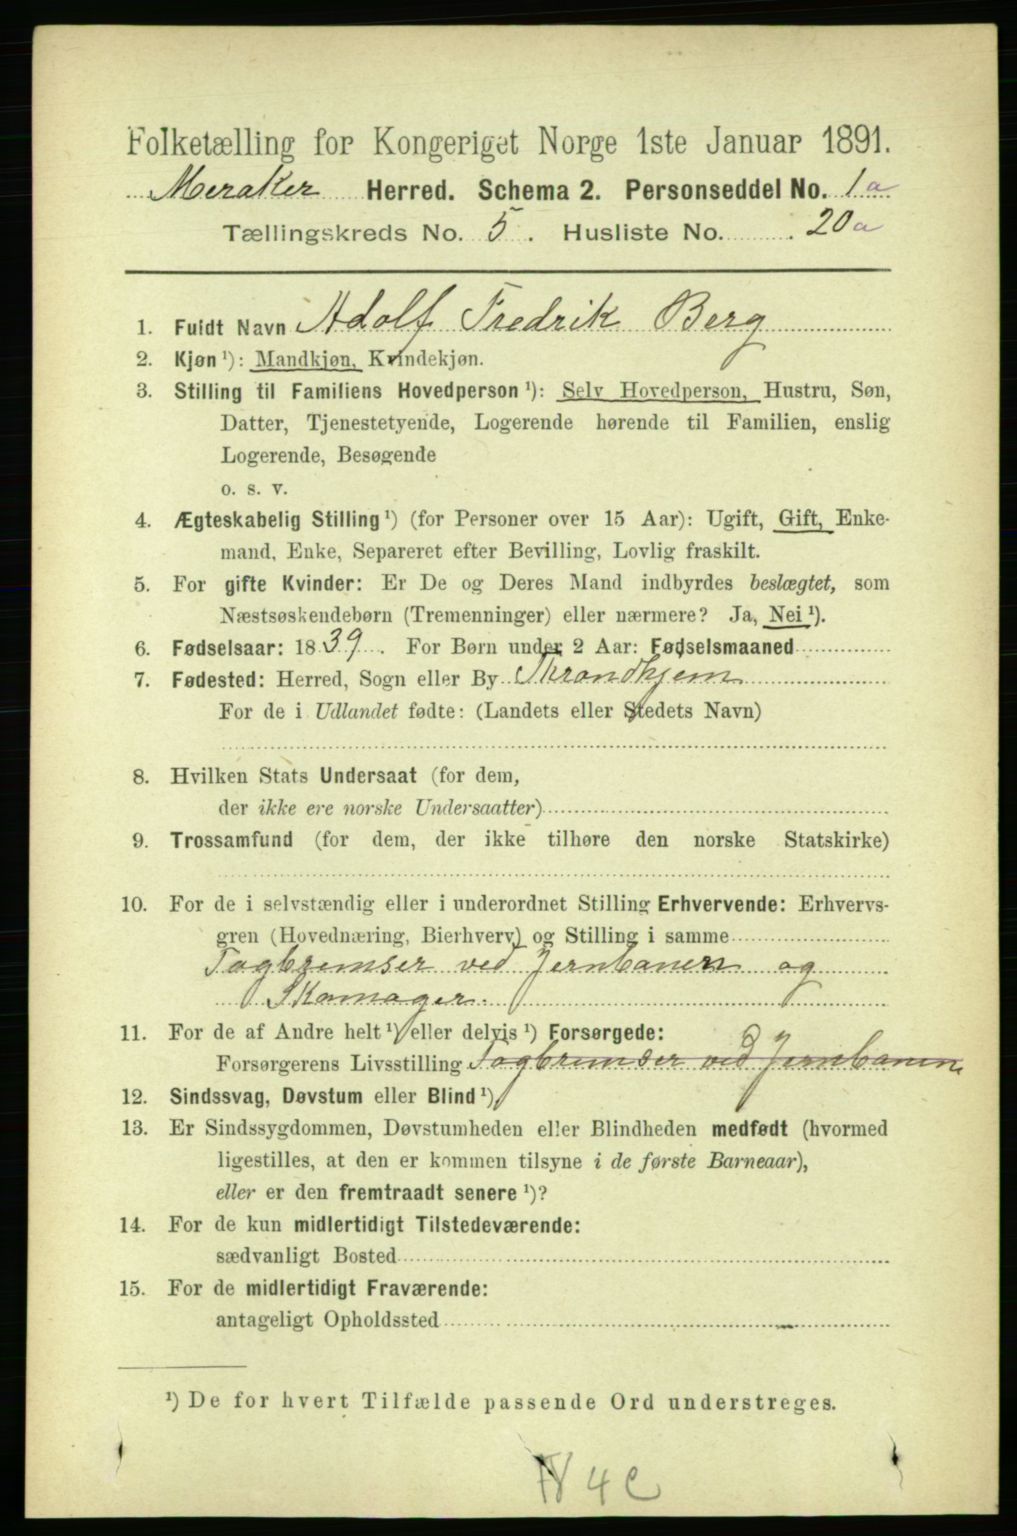 Folketælling for Kongeriget Norge 1ste Januar 1891.
Meraker Herred. Schema 2. Personseddel No. 1a
Tællingskreds No. 5. Husliste No. 20a
1. Fuldt Navn Adolf Fredrik Berg
2. Kjøn¹): Mandkjøn, Kvindekjøn.
3. Stilling til Familiens Hovedperson¹): Selv Hovedperson, Hustru, Søn,
Datter, Tjenestetyende, Logerende hørende til Familien, enslig
Logerende, Besøgende
o. s. v.
4. Ægteskabelig Stilling¹) (for Personer over 15 Aar): Ugift, Gift, Enke-
mand, Enke, Separeret efter Bevilling, Lovlig fraskilt.
5. For gifte Kvinder: Er De og Deres Mand indbyrdes beslægtet, som
Næstsøskendebørn (Tremenninger) eller nærmere? Ja, Nei¹).
6. Fødselsaar: 1839. For Børn under 2 Aar: Fødselsmaaned
7. Fødested: Herred, Sogn eller By Throndhjem
For de i Udlandet fødte: (Landets eller Stedets Navn)
8. Hvilken Stats Undersaat (for dem,
der ikke ere norske Undersaatter)
9. Trossamfund (for dem, der ikke tilhøre den norske Statskirke)
10. For de i selvstændig eller i underordnet Stilling Erhvervende: Erhvervs-
gren (Hovednæring, Bierhverv) og Stilling i samme
Togbremser ved Jernbanen og
Skomager.
11. For de af Andre helt¹) eller delvis¹) Forsørgede:
Forsørgerens Livsstilling Togbremser ved Jernbanen
12. Sindssvag, Døvstum eller Blind¹).
13. Er Sindssygdommen, Døvstumheden eller Blindheden medfødt (hvormed
ligestilles, at den er kommen tilsyne i de første Barneaar),
eller er den fremtraadt senere¹)?
14. For de kun midlertidigt Tilstedeværende:
sædvanligt Bosted
15. For de midlertidigt Fraværende:
antageligt Opholdssted
¹) De for hvert Tilfælde passende Ord understreges.
4c